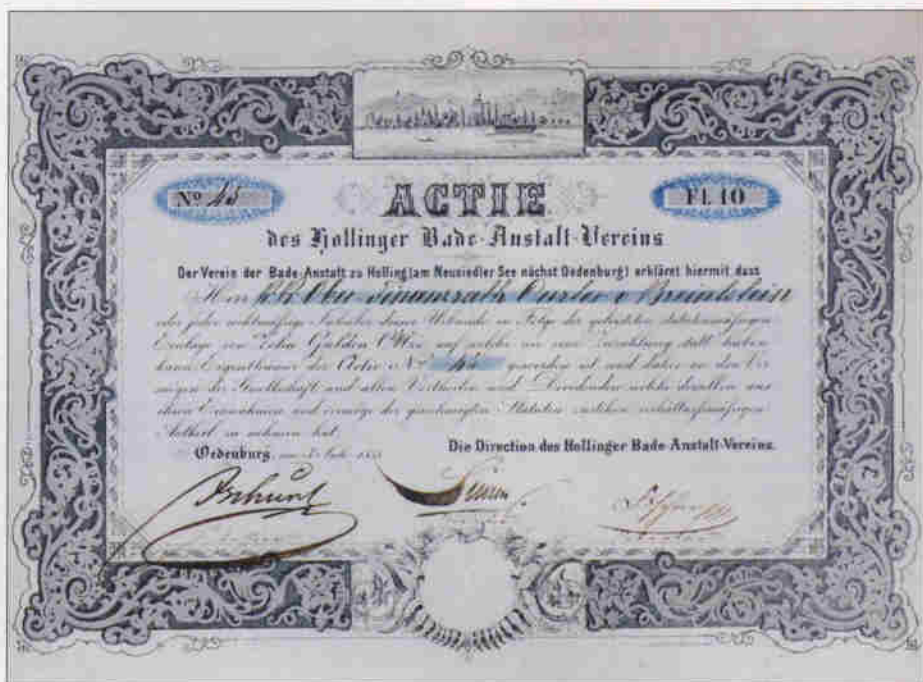 Nº 45
Fl. 10
ACTIE
des Hollinger Bade-Anstalt-Vereins
Der Verein der Bade-Anstalt zu Holling (am Neusiedler See nächst Oedenburg) erklärt hiermit, dass
Herr k.k. Ober-Finanzrath
oder jeder rechtmässige Inhaber dieser Urkunde in Folge der geleisteten statutenmässigen
Einlage von Zehn Gulden ÖW. auf welche nie eine Zuzahlung statt haben
kann Eigenthümer der Actie Nº 45 geworden ist und daher an dem Ver
mögen der Gesellschaft und allen Vortheilen und Dividenden welche derselben aus
ihren Einnahmen und vermöge der genehmigten Statuten zustehen verhältnissmässigen
Antheil zu nehmen hat.
Oedenburg, am
Die Direction des Hollinger Bade-Anstalt-Vereins.